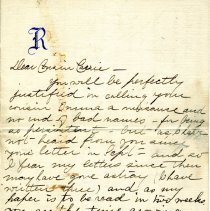 R
Dear Cousin Essie —
You will be perfectly
justified in calling your
cousin Emma a nuisance and
no end of bad names - for being
so persistent - but as I have
not heard from you since
your letter in Sept - and as
I fear my letters since then
may have gone astray (I have
written twice) and, as my
paper is to be read in two weeks